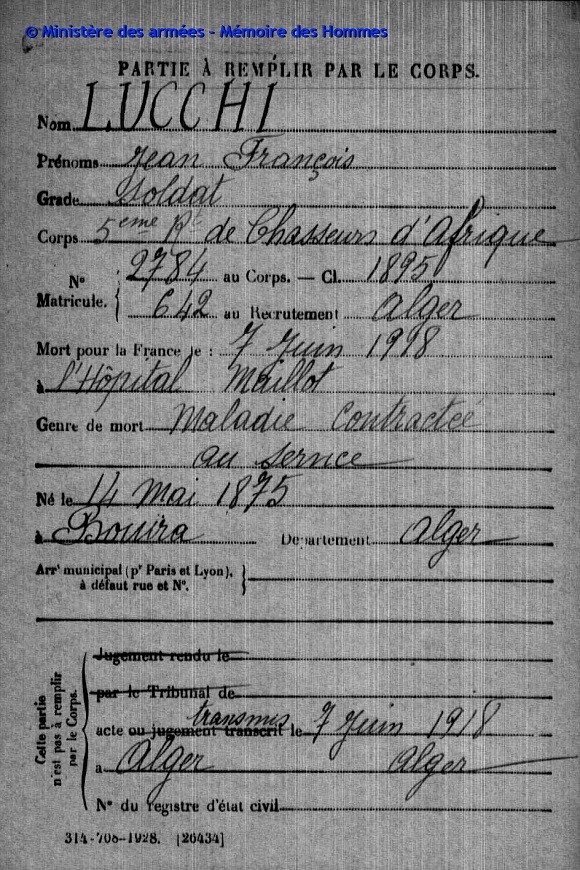 © Ministère des armées - Mémoire des Hommes
PARTIE À REMPLIR PAR LE CORPS.
Nom LUCCHI
Prénoms Jean François
Grade Soldat
Corps 5eme Rt de Chasseurs d'Afrique
N° 2784 au Corps. — Cl. 1895
Matricule. 642 au Recrutement Alger
Mort pour la France le : 7 Juin 1918
à l'Hôpital Maillot
Genre de mort Maladie Contractée
au service
Né le 14 Mai 1875
à Bouira Département Alger
Arrt municipal (pr Paris et Lyon),
à défaut rue et N°.
Cette partie
n'est pas à remplir
par le Corps.
Jugement rendu le
par le Tribunal de
transmis
acte ou jugement transcrit le 7 Juin 1918
à Alger Alger
N° du registre d'état civil
314-708-1928. [26434]